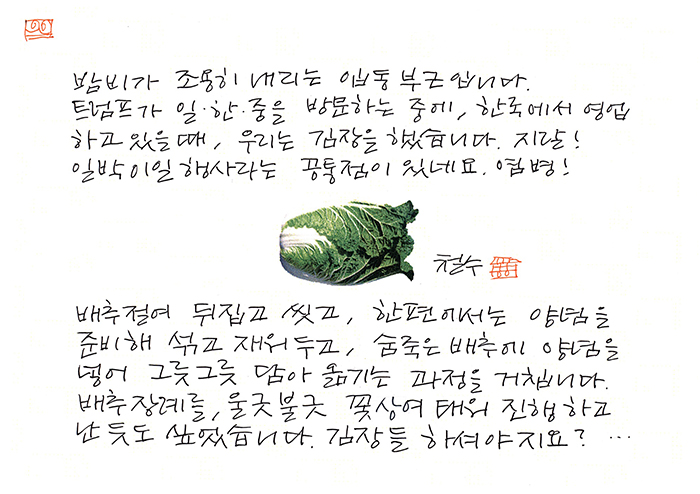 밤비가 조용히 내리는 입동 부근입니다.
트럼프가 일·한·중을 방문하는 중에, 한국에서 영업
하고 있을 때, 우리는 김장을 했습니다. 지랄!
일박이일 행사라는 공통점이 있네요. 염병!
철수
배추절여 뒤집고 씻고, 한편에서는 양념을
준비해 섞고 재워두고, 숨죽은 배추에 양념을
넣어 그릇그릇 담아 옮기는 과정을 거칩니다.
배추장례를, 울긋불긋 꽃상여 태워 진행하고
난 듯도 싶었습니다. 김장들 하셔야지요? …